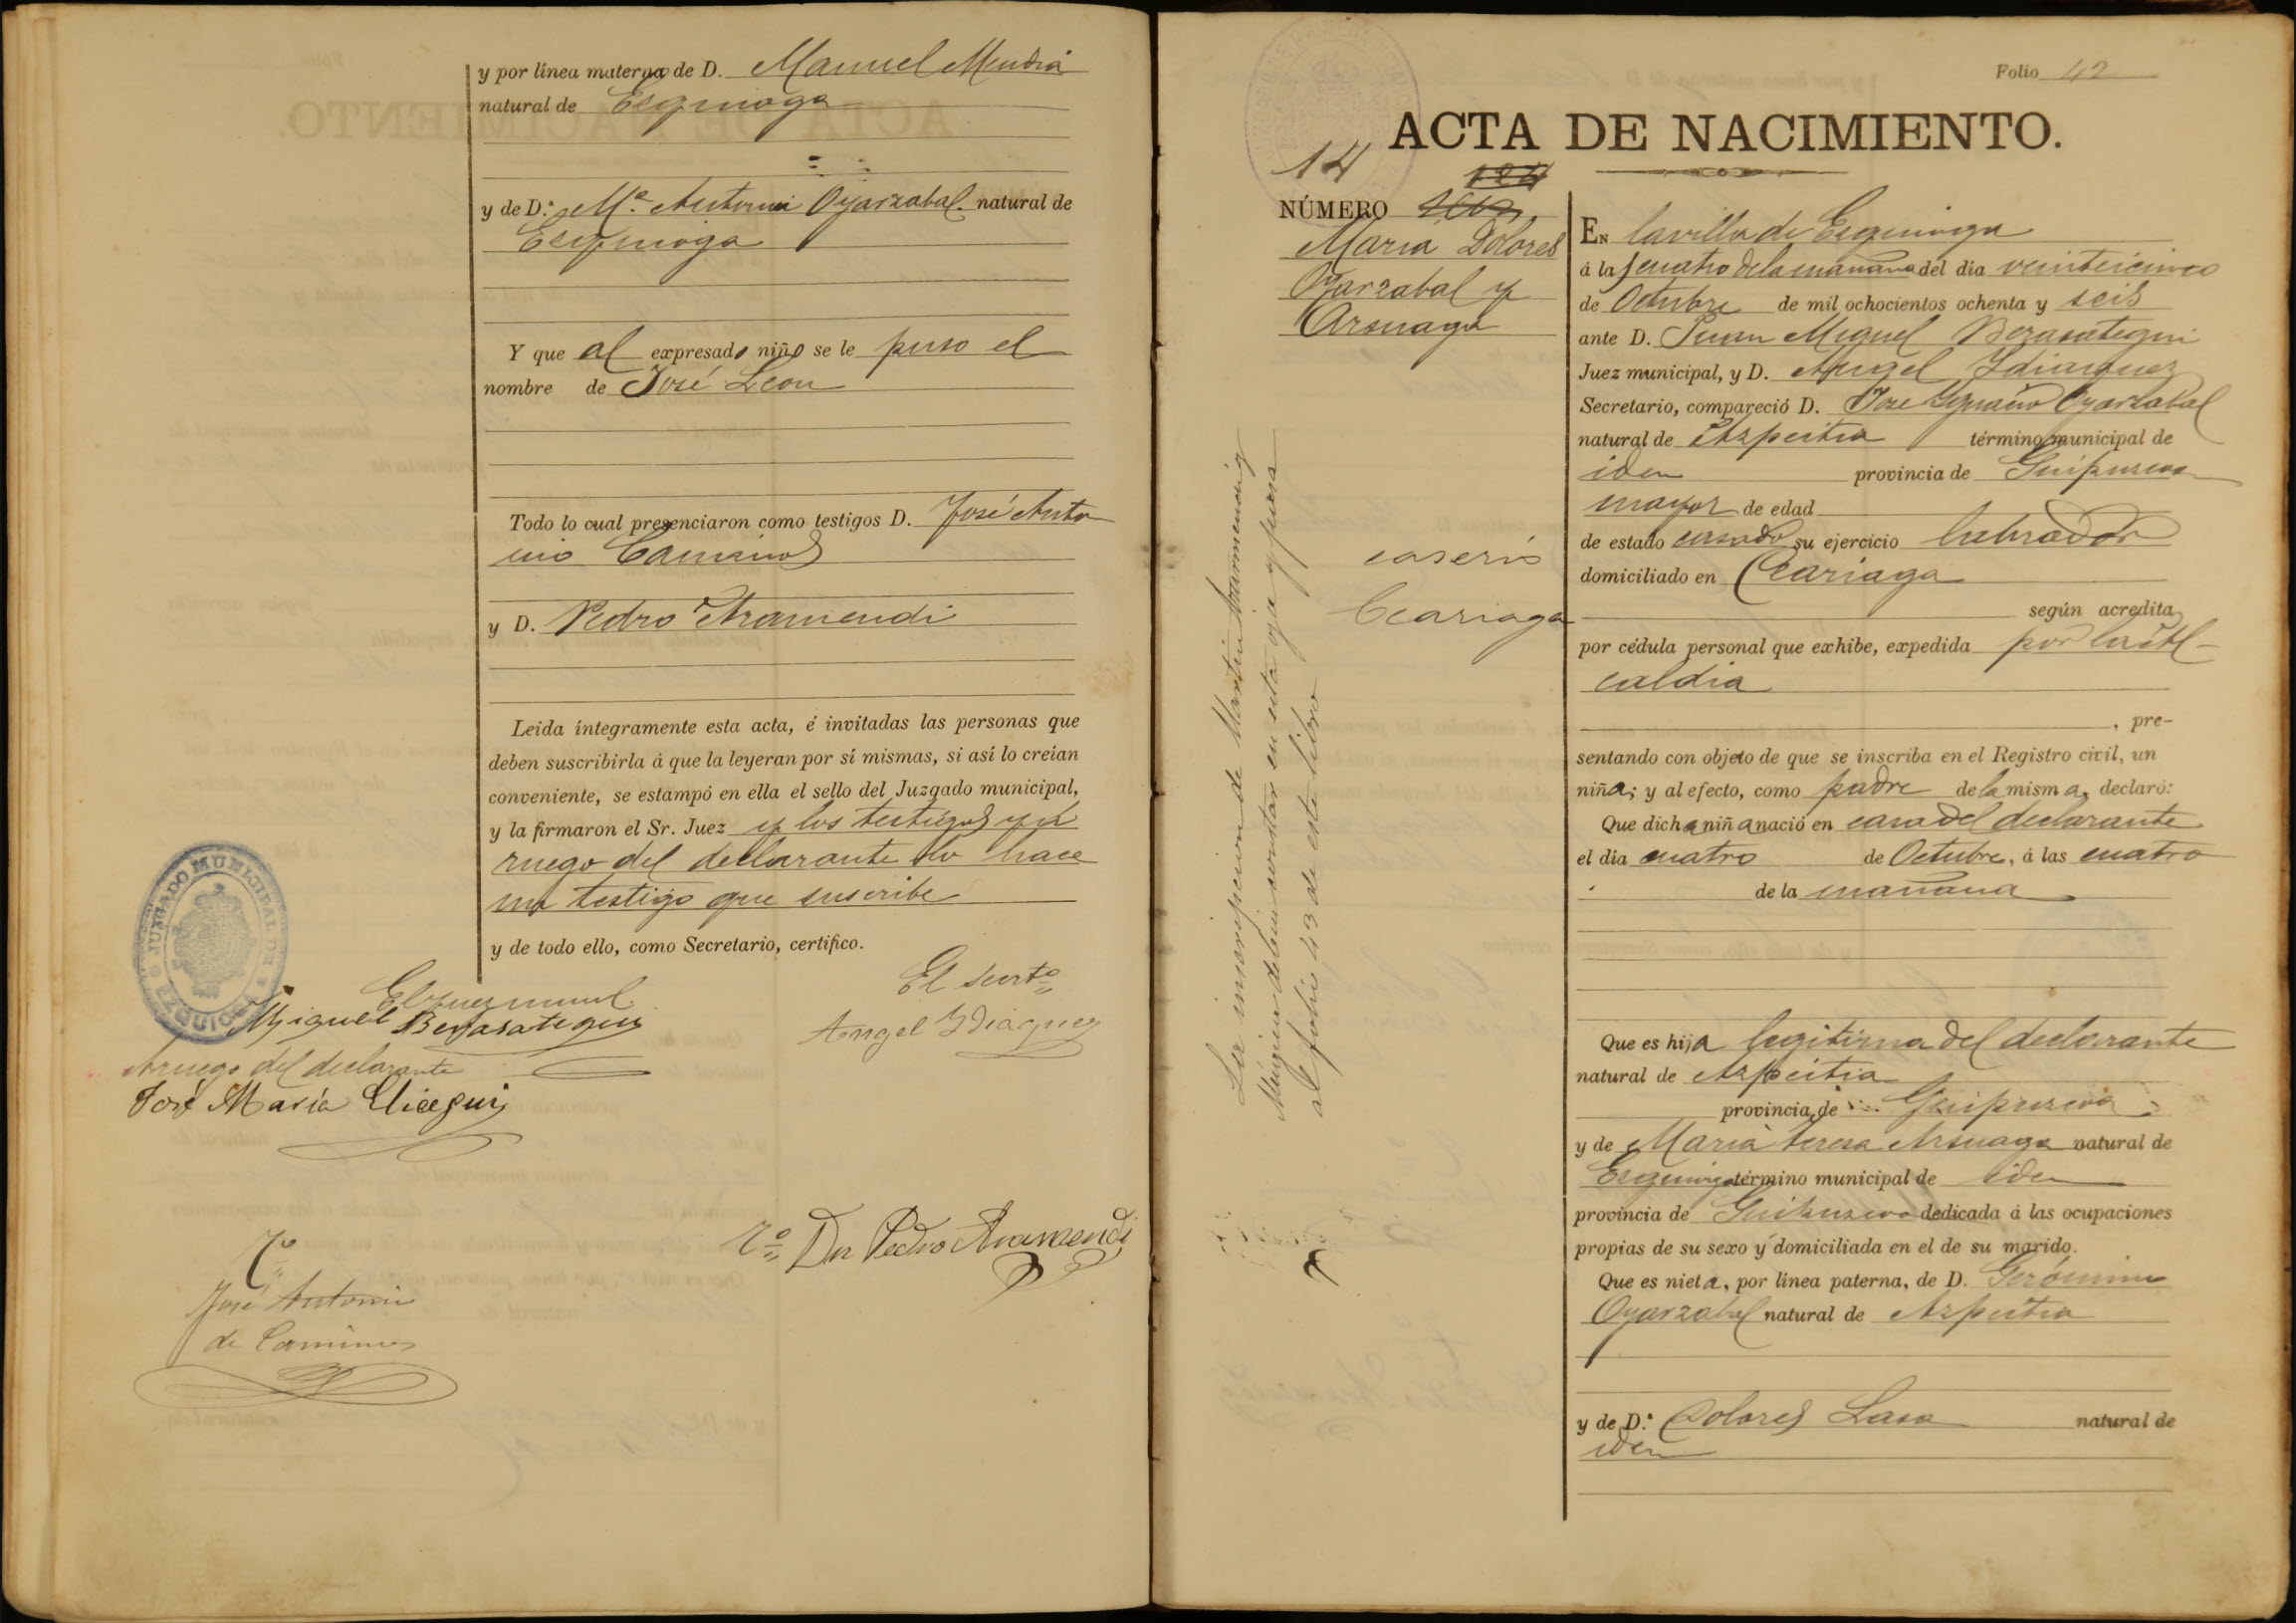 y por línea materna de D. Manuel Mendia
natural de Ezquioga
y de D.ª Mª Antonia Oyarzabal natural de
Ezquioga
Y que al expresado niño se le puso el
nombre de José Leon
Todo lo cual presenciaron como testigos D. José Anto
nio Caminos
y D. Pedro Aramendi
Leida íntegramente esta acta, é invitadas las personas que
deben suscribirla á que la leyeran por sí mismas, si así lo creían
conveniente, se estampó en ella el sello del Juzgado municipal,
y la firmaron el Sr. Juez y los testigos y á
ruego del declarante lo hace
un testigo que suscribe
y de todo ello, como Secretario, certifico.
JUZGADO MUNICIPAL DE EZQUIOGA
El Juez munl.
Miguel Berasategui
El Secretº
Angel Ydiaquez
A ruego del declarante
José María Elicegui
Tº
José Antonio
de Caminos
Tº Dn Pedro Aramendi
Folio 42
ACTA DE NACIMIENTO.
14
124
NÚMERO
Maria Dolores
Oyarzabal y
Arsuaga
caserio
Ceariaga
La inscripcion de Martin
Múgica debia constar en esta oja y pasa
al folio 43 de este libro
En la villa de Ezquioga
á las cuatro de la mañana del dia veinticinco
de Octubre de mil ochocientos ochenta y seis
ante D. Juan Miguel Berasategui
Juez municipal, y D. Angel Ydiaquez
Secretario, compareció D. Jose Ygnacio Oyarzabal
natural de Azpeitia término municipal de
iden provincia de Guipuzcoa
mayor de edad
de estado casado su ejercicio labrador
domiciliado en Ceariaga
según acredita
por cédula personal que exhibe, expedida por la Al-
caldia
, pre-
sentando con objeto de que se inscriba en el Registro civil, un
niña; y al efecto, como padre de la misma, declaró:
Que dicha niña nació en casa del declarante
el día cuatro de Octubre, á las cuatro
de la mañana
Que es hija legitima del declarante
natural de Azpeitia
provincia de Guipuzcoa
y de Maria Teresa Arsuaga natural de
Ezquioga término municipal de iden
provincia de Guipuzcoa dedicada á las ocupaciones
propias de su sexo y domiciliada en el de su marido.
Que es nieta, por línea paterna, de D. Gerónimo
Oyarzabal natural de Azpeitia
y de D.ª Dolores Lasa natural de
iden